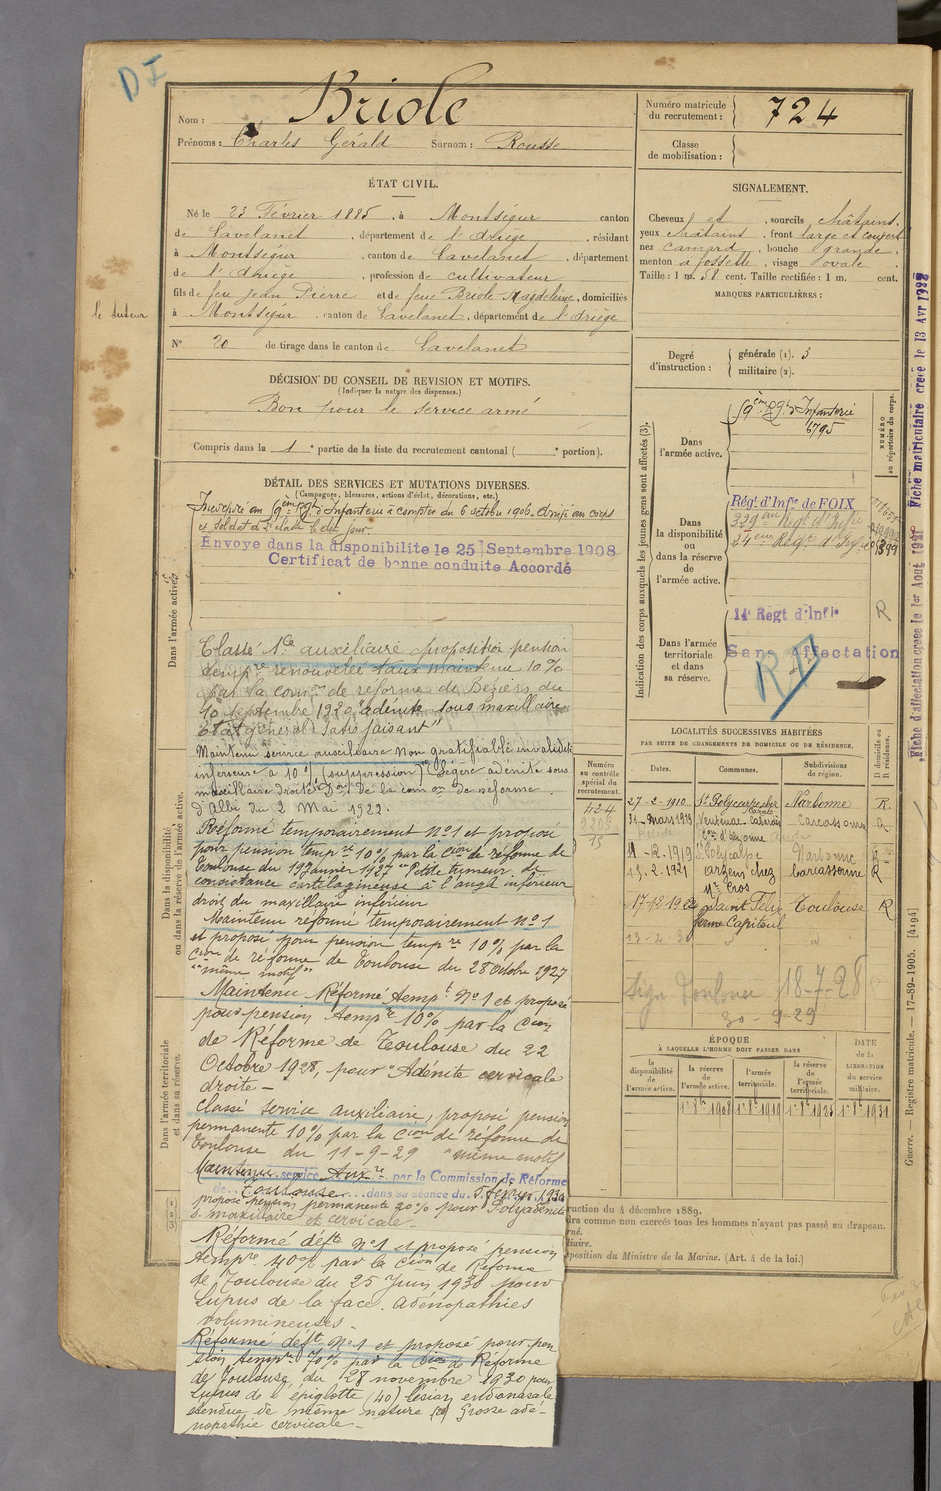 DI
Nom : Briole
Prénoms : Charles Gérald Surnom : Rousse
Numéro matricule du recrutement : 724
Classe de mobilisation :
ÉTAT CIVIL.
Né le 23 Février 1885, à Montségur canton
de Lavelanet, département de l'Ariège, résidant
à Montségur, canton de Lavelanet, département
de l'Ariège, profession de cultivateur
fils de feu Jean Pierre et de feue Briole Magdeleine, domiciliés
à Montségur, canton de Lavelanet, département de l'Ariège
le tuteur
N° 20 de tirage dans le canton de Lavelanet
SIGNALEMENT.
Cheveux et , sourcils châtains.
yeux châtains , front large et couvert
nez camard , bouche grande.
menton à fossette , visage ovale
Taille : 1 m. 58 cent. Taille rectifiée : 1 m. cent.
MARQUES PARTICULIÈRES :
Degré d'instruction : générale (1). 3
militaire (2).
DÉCISION DU CONSEIL DE REVISION ET MOTIFS.
(Indiquer la nature des dispenses.)
Bon pour le service armé
Compris dans la 1e partie de la liste du recrutement cantonal ( e portion).
DÉTAIL DES SERVICES ET MUTATIONS DIVERSES.
(Campagnes, blessures, actions d'éclat, décorations, etc.)
Incorporé au 59ème Rgt d'Infanterie à compter du 6 octobre 1906. Arrivé au corps
et soldat de 2e classe le dit jour.
Envoyé dans la disponibilité le 25 Septembre 1908
Certificat de bonne conduite Accordé
Dans l'armée active.
Dans la disponibilité ou dans la réserve de l'armée active.
Dans l'armée territoriale et dans sa réserve.
Classé Sce auxiliaire proposition pension
tempre renouvelée taux maintenu 10%
par la comon de réforme de Béziers du
10 septembre 1920 "adénite sous maxillaire
Etat général satisfaisant"
Maintenu service auxiliaire non gratifiable invalidité
inférieure à 10% (suppression) Légère adénite sous
maxillaire droite Don de la comon de réforme
d'Albi du 2 Mai 1922.
Réformé temporairement N°1 et proposé
pour pension tempre 10% par la Cion de réforme de
Toulouse du 19 Janvier 1927 "Petite tumeur de
consistance cartilagineuse à l'angle inférieur
droit du maxillaire inférieur
Maintenu réformé temporairement N°1
et proposé pour pension tempre 10% par la
Cion de réforme de Toulouse du 28 Octobre 1927
"même motif"
Maintenu Réformé tempt N°1 et proposé
pour pension tempre 10% par la Cion
de Réforme de Toulouse du 22
Octobre 1928, pour "Adénite cervicale
droite –
Classé service auxiliaire, proposé pension
permanente 10% par la Cion de réforme de
Toulouse du 11-9-29 "même motif
Maintenu service Auxre par la Commission de Réforme
de Toulouse dans sa séance du 1930
proposé pension permanente 20% pour Polyadénite
s. maxillaire et cervicale –
Réformé déft N°1 et proposé pension
tempre 40% par la Cion de Réforme
de Toulouse du 25 Juin 1930 pour
Lupus de la face. Adénopathies
volumineuses –
Réformé déft N°1 et proposé pour pen
sion tempre 70% par la Cion de Réforme
de Toulouse du 28 novembre 1930 pour
Lupus de l'épiglotte (40) lésion endonasale
étendue de même nature (20) Grosse adé-
nopathie cervicale –
Indication des corps auxquels les jeunes gens sont affectés (3).
NUMÉRO au répertoire du corps.
Dans l'armée active.
59ème Rgt d'Infanterie
6795
Dans la disponibilité ou dans la réserve de l'armée active.
Régt d'Infie de FOIX
339eme Regt d'Infie
24eme Regt d'Infie
Dans l'armée territoriale et dans sa réserve.
14e Regt d'Infie
R
Sans affectation
Numéro au contrôle spécial du recrutement.
LOCALITÉS SUCCESSIVES HABITÉES
PAR SUITE DE CHANGEMENTS DE DOMICILE OU DE RÉSIDENCE.
Dates. Communes. Subdivisions de région. D domicile ou R résidence.
27-2-1910 St Polycarpe Narbonne R
31 mars 1913 Ventenac Cabardès Carcassonne R
11-2-1919 St Polycarpe Narbonne R
15-2-1921 Argens chez Carcassonne R
Mr Gros
17-12-1922 Saint Félix Toulouse R
ferme Capitoul
13-2-30 " "
Toulouse 18-7-28
30-9-29
ÉPOQUE
À LAQUELLE L'HOMME DOIT PASSER DANS
DATE de la LIBÉRATION du service militaire.
la disponibilité de l'armée active. la réserve de l'armée active. l'armée territoriale. la réserve de l'armée territoriale.
1er 8bre 1908 1er 8bre 1919 1er 8bre 1925 1er 8bre 1931
ruction du 4 décembre 1889.
dra comme non exercés tous les hommes n'ayant pas passé au drapeau.
rné.
liaire.
position du Ministre de la Marine. (Art. 4 de la loi.)
Guerre. — Registre matricule. — 17-89-1905. [4194]
Fiche d'affectation créée le 1er Août 1927 Fiche matriculaire créée le 13 Avr 1928